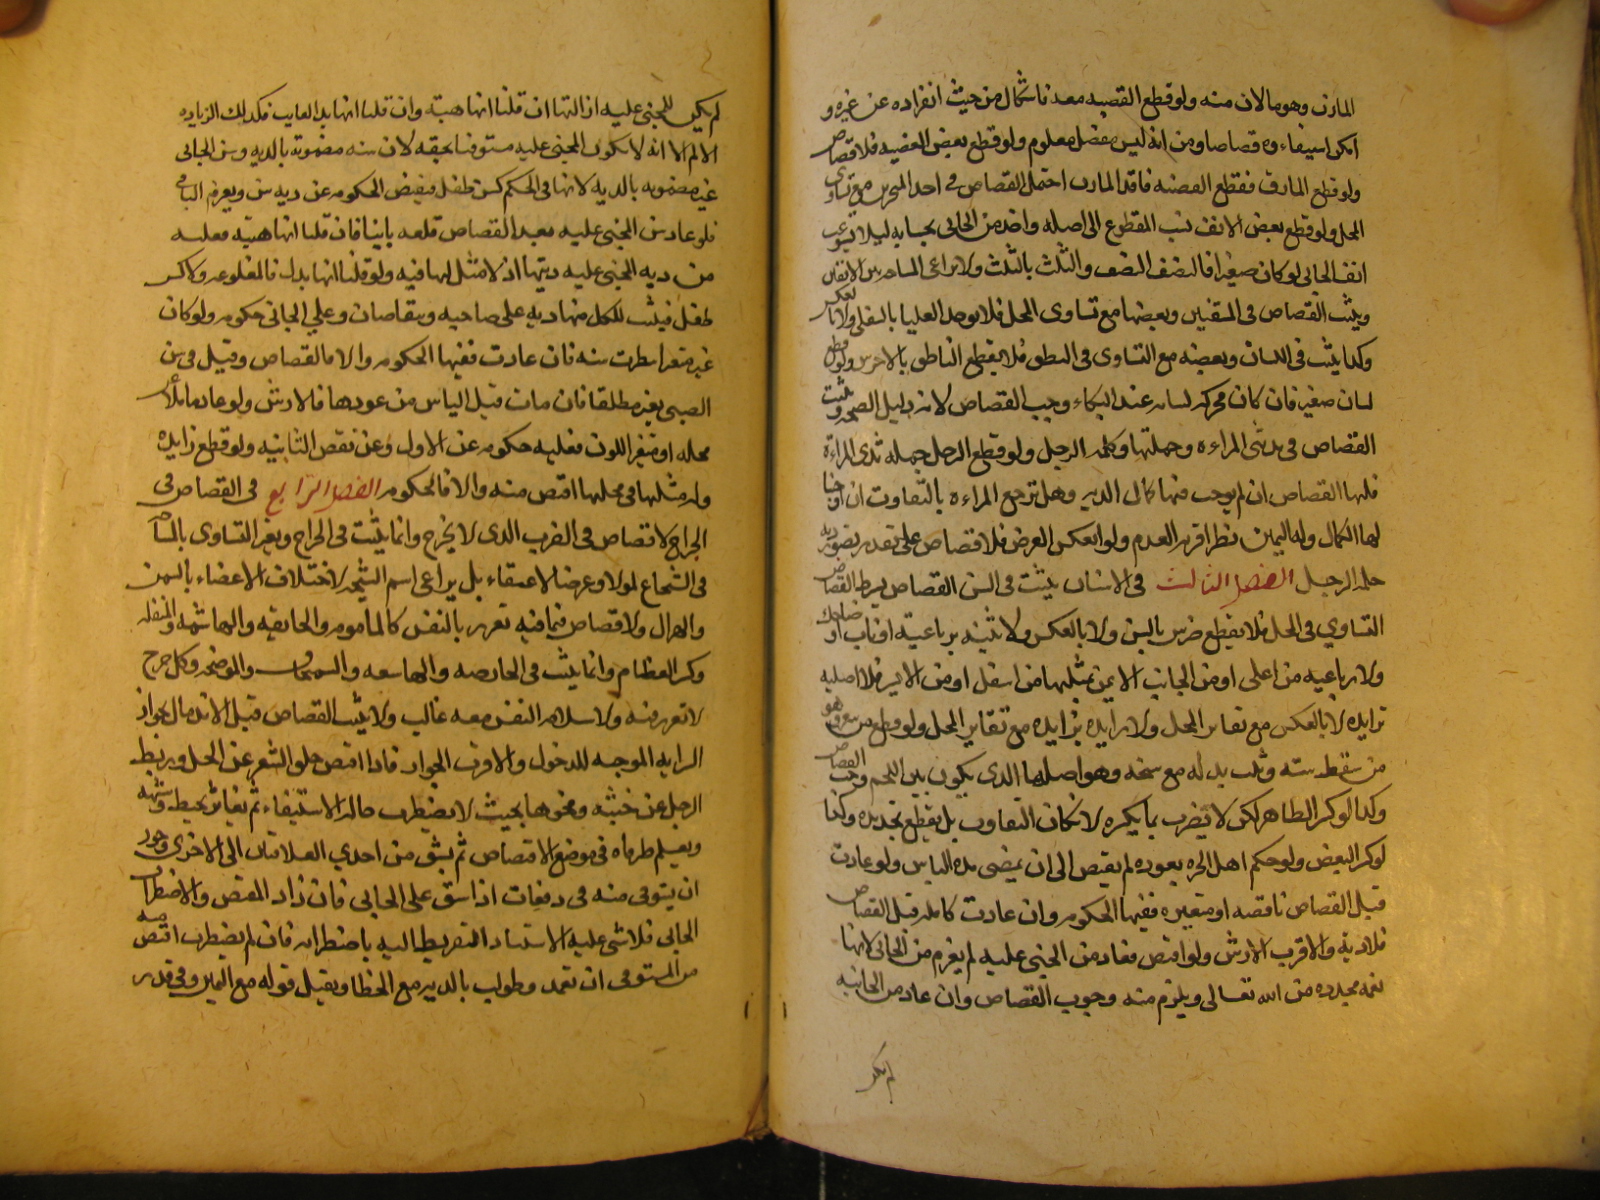 المارن وهو ما لان منه ولو قطع القصبه معه فاشكال من حيث انفراده عن غيره و
امكن استيفاءه قصاصا ومن انه ليس مفصل معلوم ولو قطع بعض القصبه فلا قصاص
ولو قطع المارن فقطع القصبه فاقد المارن احتمل القصاص في احد المنخرين مع تساوى
المحل ولو قطع بعض الانف نسب المقطوع الى اصله واخذ من الجانى بحسابه ليلا يستوعب
انف الجانى لو كان صغيرا فالنصف بالنصف والثلث بالثلث ولا يراعى المساحه بين الانفين
ويثبت القصاص فى الشفتين وبعضها مع تساوى المحل فلا يوخذ العليا بالسفلى ولا بالعكس
وكذا يثبت فى اللسان وبعضه مع التساوى فى النطق فلا يقطع الناطق بالاخرس ولو قطع
لسان صغير فان كان محركه لسانه عند البكاء وجب القصاص لانه دليل الصحه ويثبت
القصاص فى ثدى المراءه وحلمتها وكذا الرجل ولو قطع الرجل حلمه ثدى المراة
فلها القصاص ان لم يوجب فيها كمال الديه وهل ترجع المراءه بالتفاوت ان اوجبنا
لها الكمال وله الثمن نظر اقربه العدم ولو انعكس الفرض فلا قصاص على تقدير قصور ديه
حلمه الرجل الفصل الثالث فى الاسنان يثبت فى السن القصاص بشرط القصاص
التساوي فى المحل فلا يقطع ضرس بالسن ولا بالعكس ولا ثنيه برباعية او ناب او ضاحك
ولا رباعيه من اعلى او من الجانب الايمن بمثلها من اسفل او من الايسر فلا اصليه
بزايده لا بالعكس مع تغاير المحل ولا زايده بزايده مع تغاير المحل ولو قطع من هو
من سقط سنه وثبت بدله مع سنخه وهو اصلها الذى يكون بين اللحم وجب القصاص
وكذا لو كسر الظاهر لكن لا يضرب بما يكسره لامكان التفاوت بل يقطع بحديده وكذا
لو كسر البعض ولو حكم اهل الخبره بعوده لم يقتص الى ان يمضى مده الياس ولو عادت
قبل القصاص ناقصه او متغيره ففيها الحكومه وان عادت كامله قبل القصاص
فلا دية والاقرب الارش ولو اقتص فعاد من المجنى عليه لم يغرم من الجانى لانها
نعمه مجدده من الله تعالى ويلزم منه وجوب القصاص وان عاد من الجانيه
لم يكن
لم يكن للمجنى عليه ازالتها ان قلنا انها هبة وان قلنا انها بدل الغايب فكذلك لزياده
الالم الا انه لا يكون المجنى عليه مستوفيا بحقه لان سنه مضمونه بالديه وسن الجانى
غير مضمونه بالديه لانها فى الحكم كسن طفل فينقص الحكومه عن ديه سن ويغرم الباقى
فلو عاد سن المجنى عليه بعد القصاص فقلعه ثانيا فان قلنا انها هبة فعليه
من ديه المجنى عليه ديتها اذ لا مثل لها فيه ولو قلنا انها بدل فالمقلوعه وكسن
طفل فيثبت لكل منهما ديه على صاحبه ويتقاصان وعلي الجانى حكومه ولو كان
غير مثغر انتظرت سنه فان عادت ففيها الحكومه والا فالقصاص وقيل فى سن
الصبى بعير مطلقا فان مات قبل الياس من عودها فالارش ولو عاد مايلا
محله او متغير اللون فعليه حكومه عن الاول وعن نقص الثانيه ولو قطع زايده
وله مثلها فى محلها اقتص منه والا فالحكومه الفصل الرابع فى القصاص فى
الجراح لا قصاص فى الضرب الذى لا يجرح وانما يثبت فى الجراح ويعتبر التساوى بالمساحه
فى الشجاج طولا وعرضا لا عمقاء بل يراعى اسم الشجه لاختلاف الاعضاء بالسمن
والهزال ولا قصاص فيما فيه تغرير بالنفس كالمامومه والجائفه والهاشمه والمنقله
وكسر العظام وانما يثبت فى الحارصه والباضعه والسمحاق والموضحه وكل جرح
لا تغرير منه وسلامه النفس معه غالب ولا يثبت القصاص قبل الاندمال لجواز
السرايه الموجبه للدخول والاقرب الجواز فاذا اقتص حلق الشعر عن المحل ويربط
الرجل عن خشبه ونحوها بحيث لا يضطرب حاله الاستيفاء ثم يقاس بخيط وشبهه
ويعلم طرفاه فى موضع الاقتصاص ثم يشق من احدي العلامتين الى الاخرى ويجوز
ان يستوفى منه فى دفعات اذا شق على الجانى فان زاد المقتص والاضطراب
الجانى فلا شى عليه لاستناد التفريط اليه باضطرابه فان لم يضطرب اقتص منه
من المستوفى ان تعمد وطولب بالديه مع الخطا ويقبل قوله مع اليمين وفى قدر